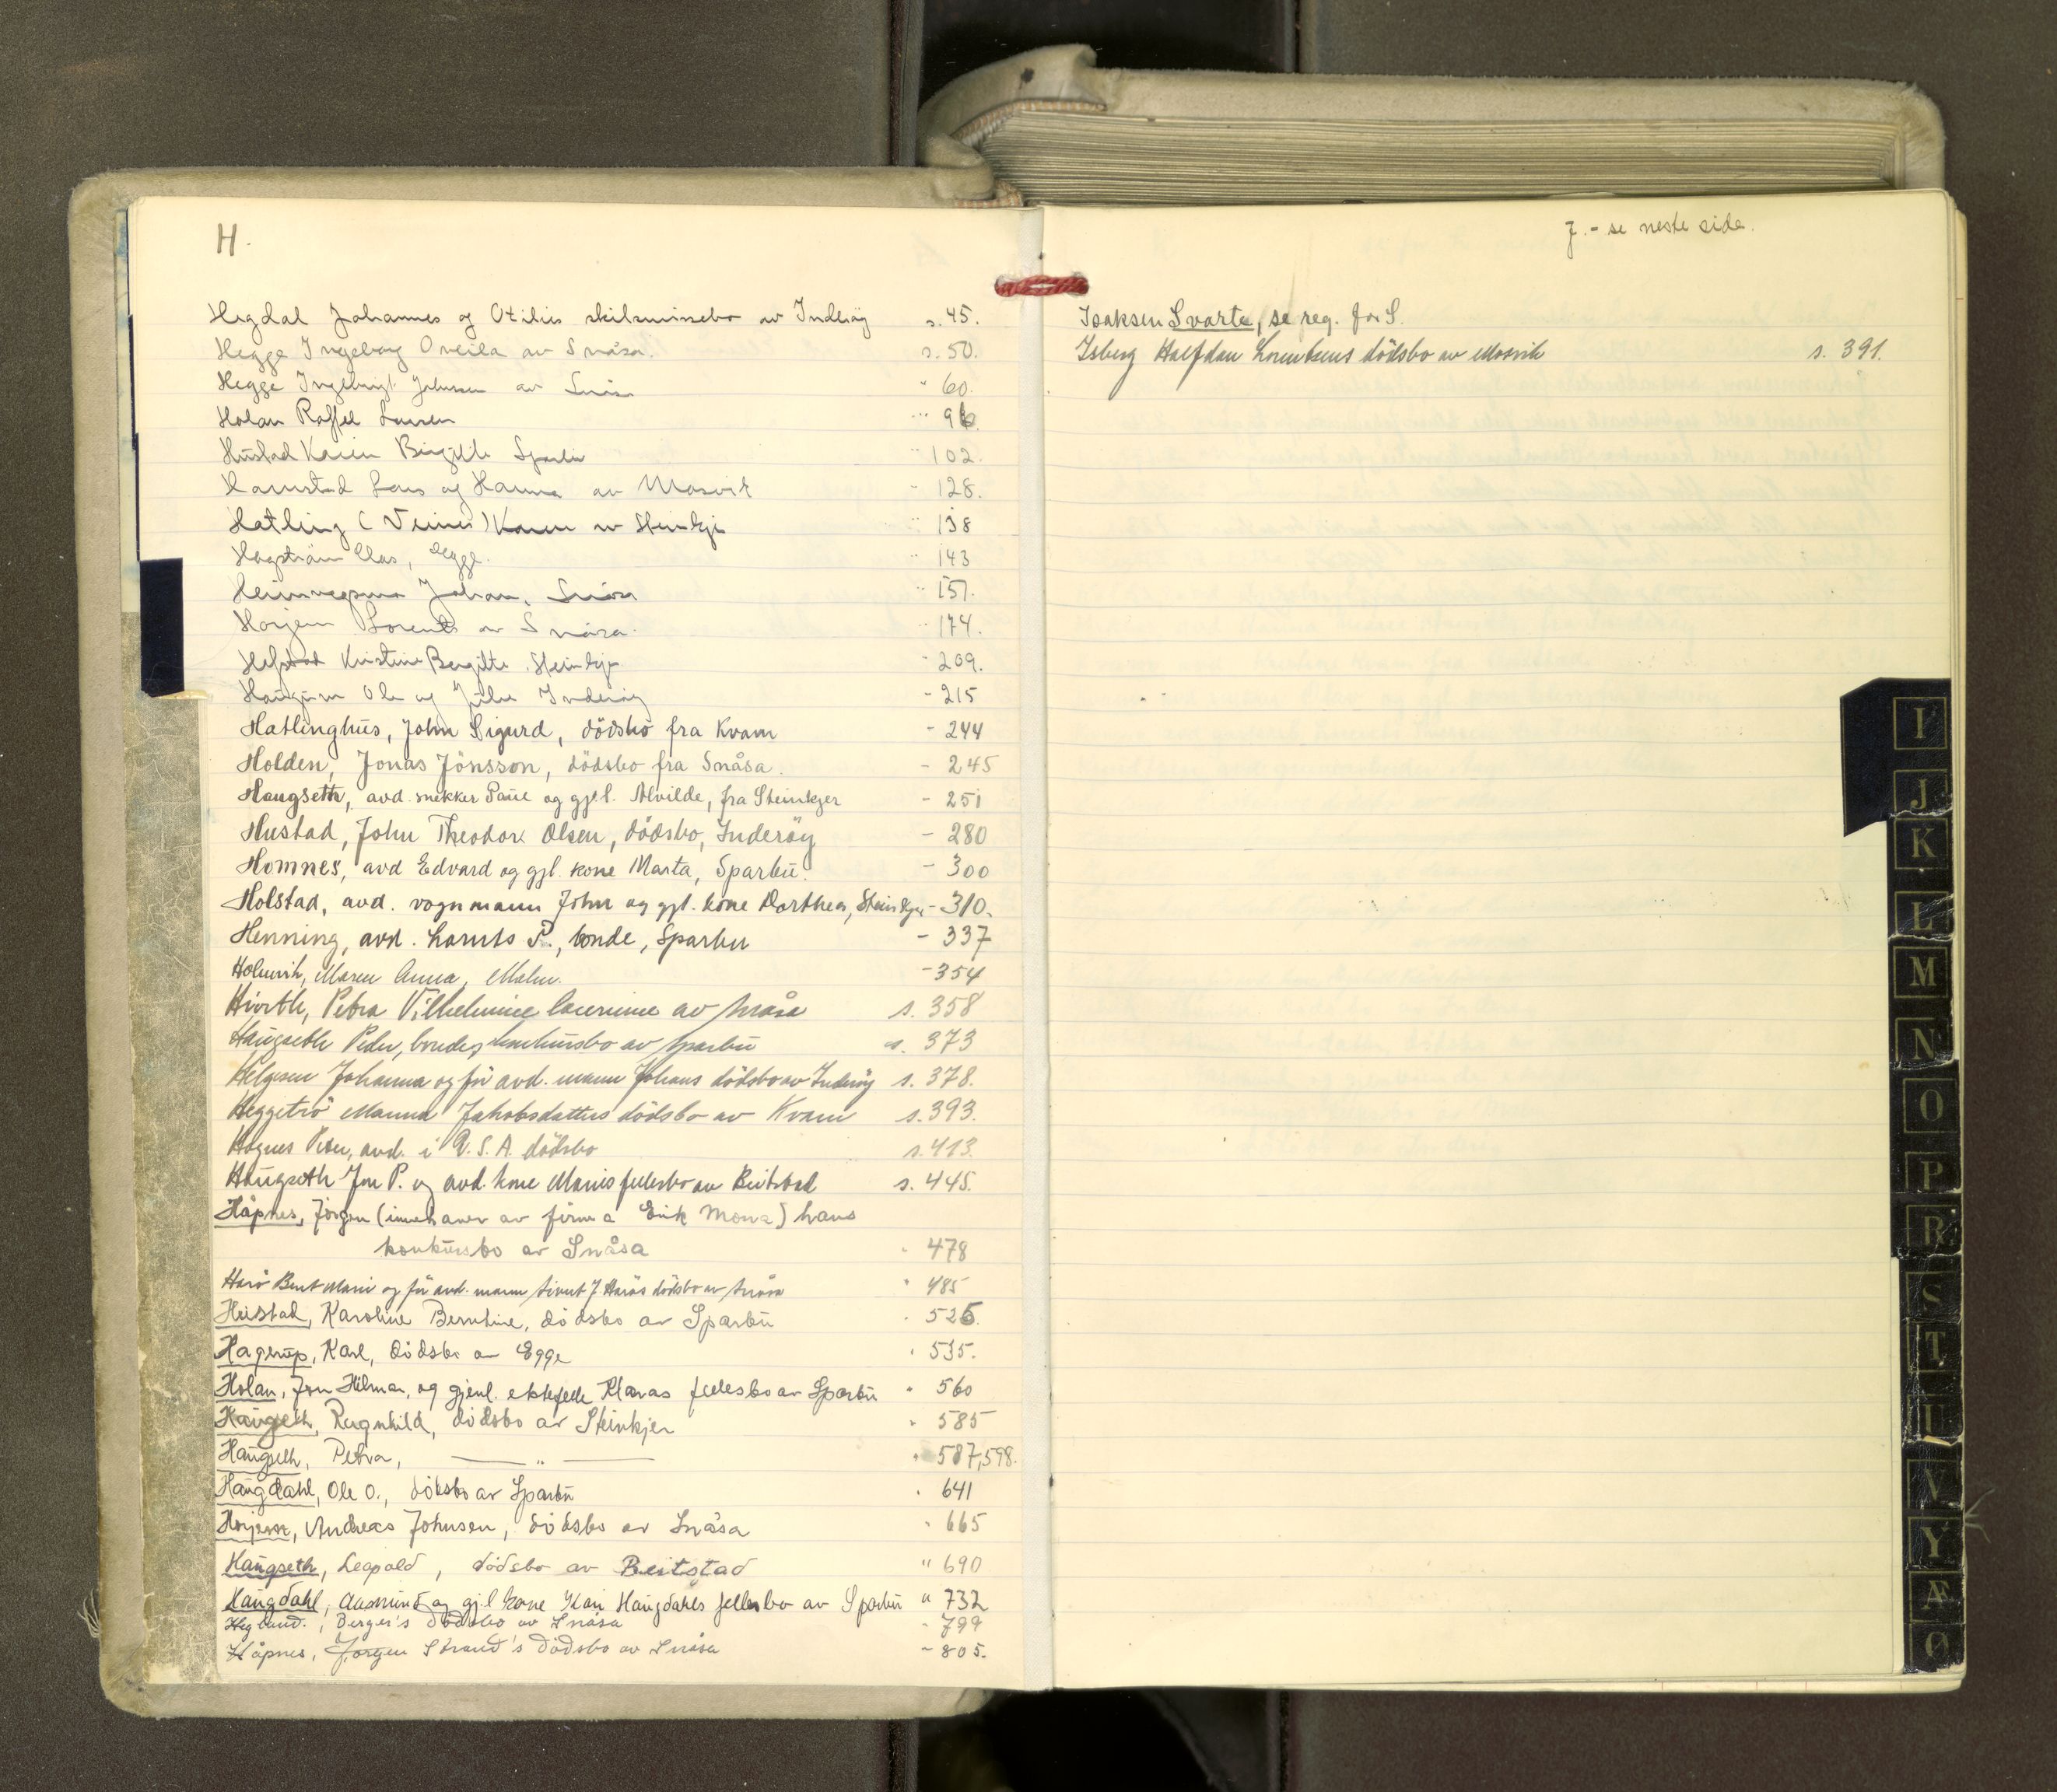 H.
Hegdal Johannes og Otilies skilsmissebo av Inderöy s. 45.
Hegge Ingeborg Oveila av Snåsa. s. 50.
Hegge Ingebrigt Johnsen av Snåsa " 60.
Holan Raffel Larsen " 96
Hustad Karen Birgitte Sparbu " 102.
Hamstad Lars og Hanna av Mosvik - 128.
Hatling (Veines) Karen av Steinkjer " 138
Hagström Clas, Egge. " 143
Johan, Snåsa " 157.
Horjem Lorents av Snåsa. " 174.
Hefstad Kristine Bergitte. Steinkjer - 209.
Haugum Ole og Julie Inderöy - 215
Hatlinghus, John Sigurd, dödsbo fra Kvam - 244
Holden, Jonas Jönsson, dödsbo fra Snåsa. - 245
Haugseth, avd. snekker Paul og gjel. Alvilde, fra Steinkjer - 251
Hustad, John Theodor Olsen, dödsbo, Inderöy - 280
Homnes, avd Edvard og gjl. kone Marta, Sparbu. - 300
Holstad, avd. vognmann John og gjl. kone Dorthea, Steinkjer - 310.
Henning, avd. Lornts P., bonde, Sparbu - 337
Holmvik, Maren Anna, Malm. - 354
Petra Vilhelmine av Snåsa s. 358
Haugseth Peder, bonde, konkursbo av Sparbu s. 373
Helgesen Johanna og för avd. mann Johans dödsbo av Inderöy s. 378.
Heggetrö Manna Jakobsdatters dödsbo av Kvam s. 393.
Hognes Peter, avd. i U.S.A. dödsbo s. 413.
Haugseth Jon P. og avd. kone Maries fellesbo av Beitstad s. 445.
Håpnes, Jörgen (innehaver av firma Erik Mona) hans
konkursbo av Snåsa " 478
Harö Bent Marie og för avd. mann Sivert J. Harös dödsbo av Snåsa " 485
Heistad, Karoline Berntine, dödsbo av Sparbu " 525.
Hagerup, Karl, dödsbo av Egge " 535.
Holan, Jon Hilmar, og gjenl. ektefelle Klaras fellesbo av Sparbu " 560
Haugseth, Ragnhild, dödsbo av Steinkjer " 585
Haugseth, Petra, — " — " 587,598.
Haugdahl, Ole O., dödsbo av Sparbu " 641
Horjem, Andreas Johnsen, dödsbo av Snåsa " 665
Haugseth, Leopold, dödsbo av Beitstad " 690
Haugdahl, Aasmund og gj.l kone Kari Haugdahls fellesbo av Sparbu " 732
Hegland., Berger's dödsbo av Snåsa - 799
Håpnes, Jörgen Strand's dödsbo av Snåsa - 805.
J. - se neste side.
Isaksen Svarta, se reg. for S.
Isberg Halfdan Lorentsens dödsbo av Mosvik s. 391.
I
J
K
L
M
N
O
P
R
S
T
U
V
Y
Æ
Ø